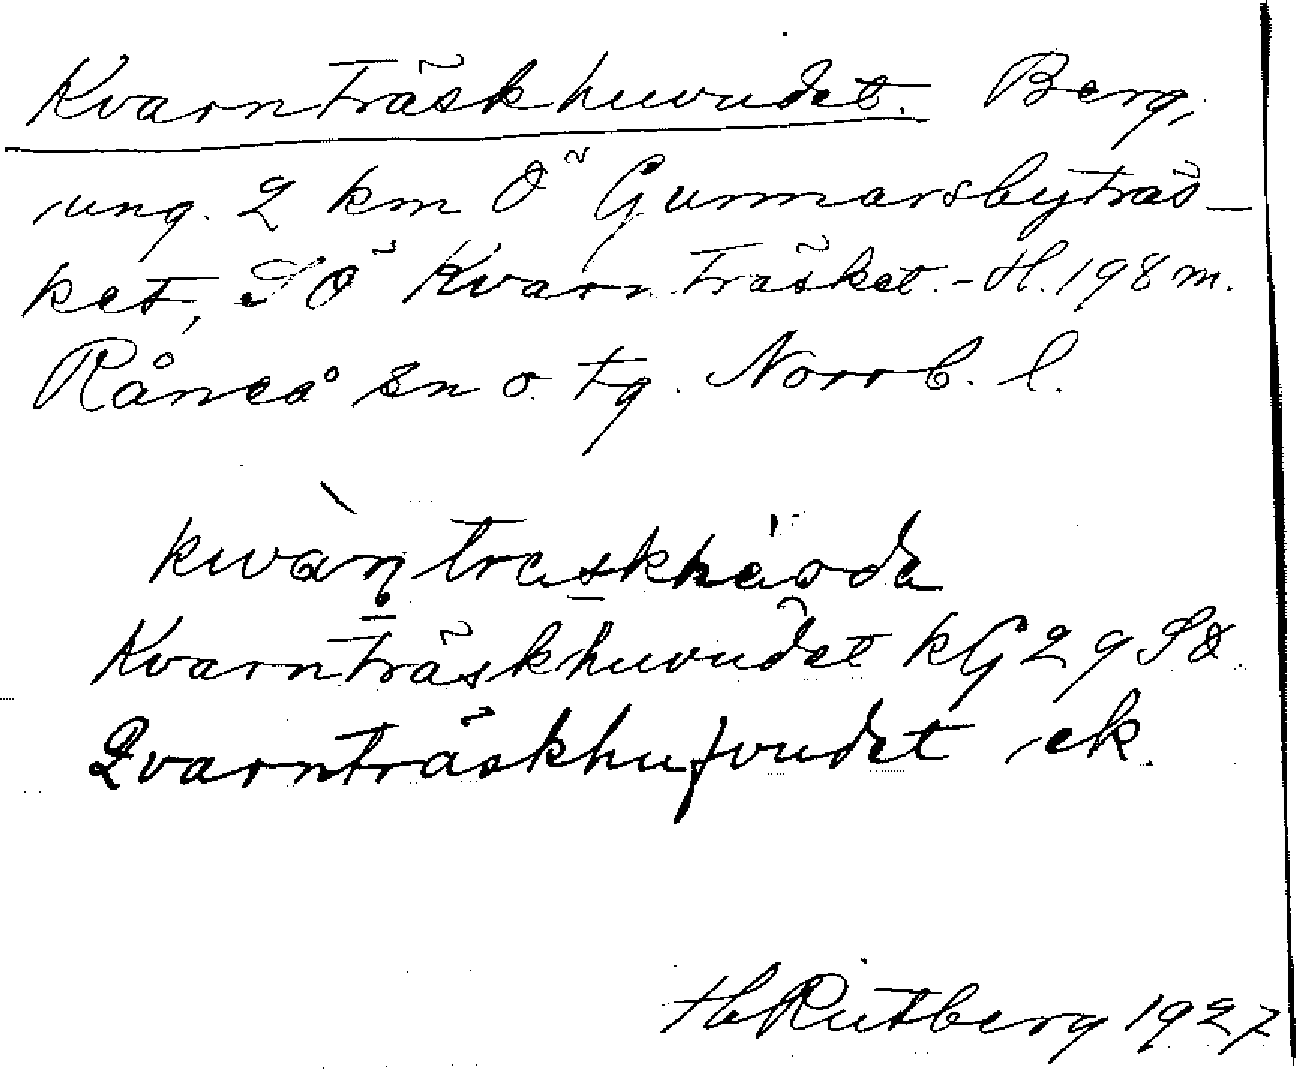 Kvarnträskhuvudet. Berg,
ung. 2 km Ö Gunnarsbyträs-
ket, SÖ Kvarnträsket. - H. 198 m.
Råneå sn o. tg. Norrb. l.
Kvarnträskhuvudet kG 29 SÖ.
Qvarnträskhufvudet ek.
H Rutberg 1927